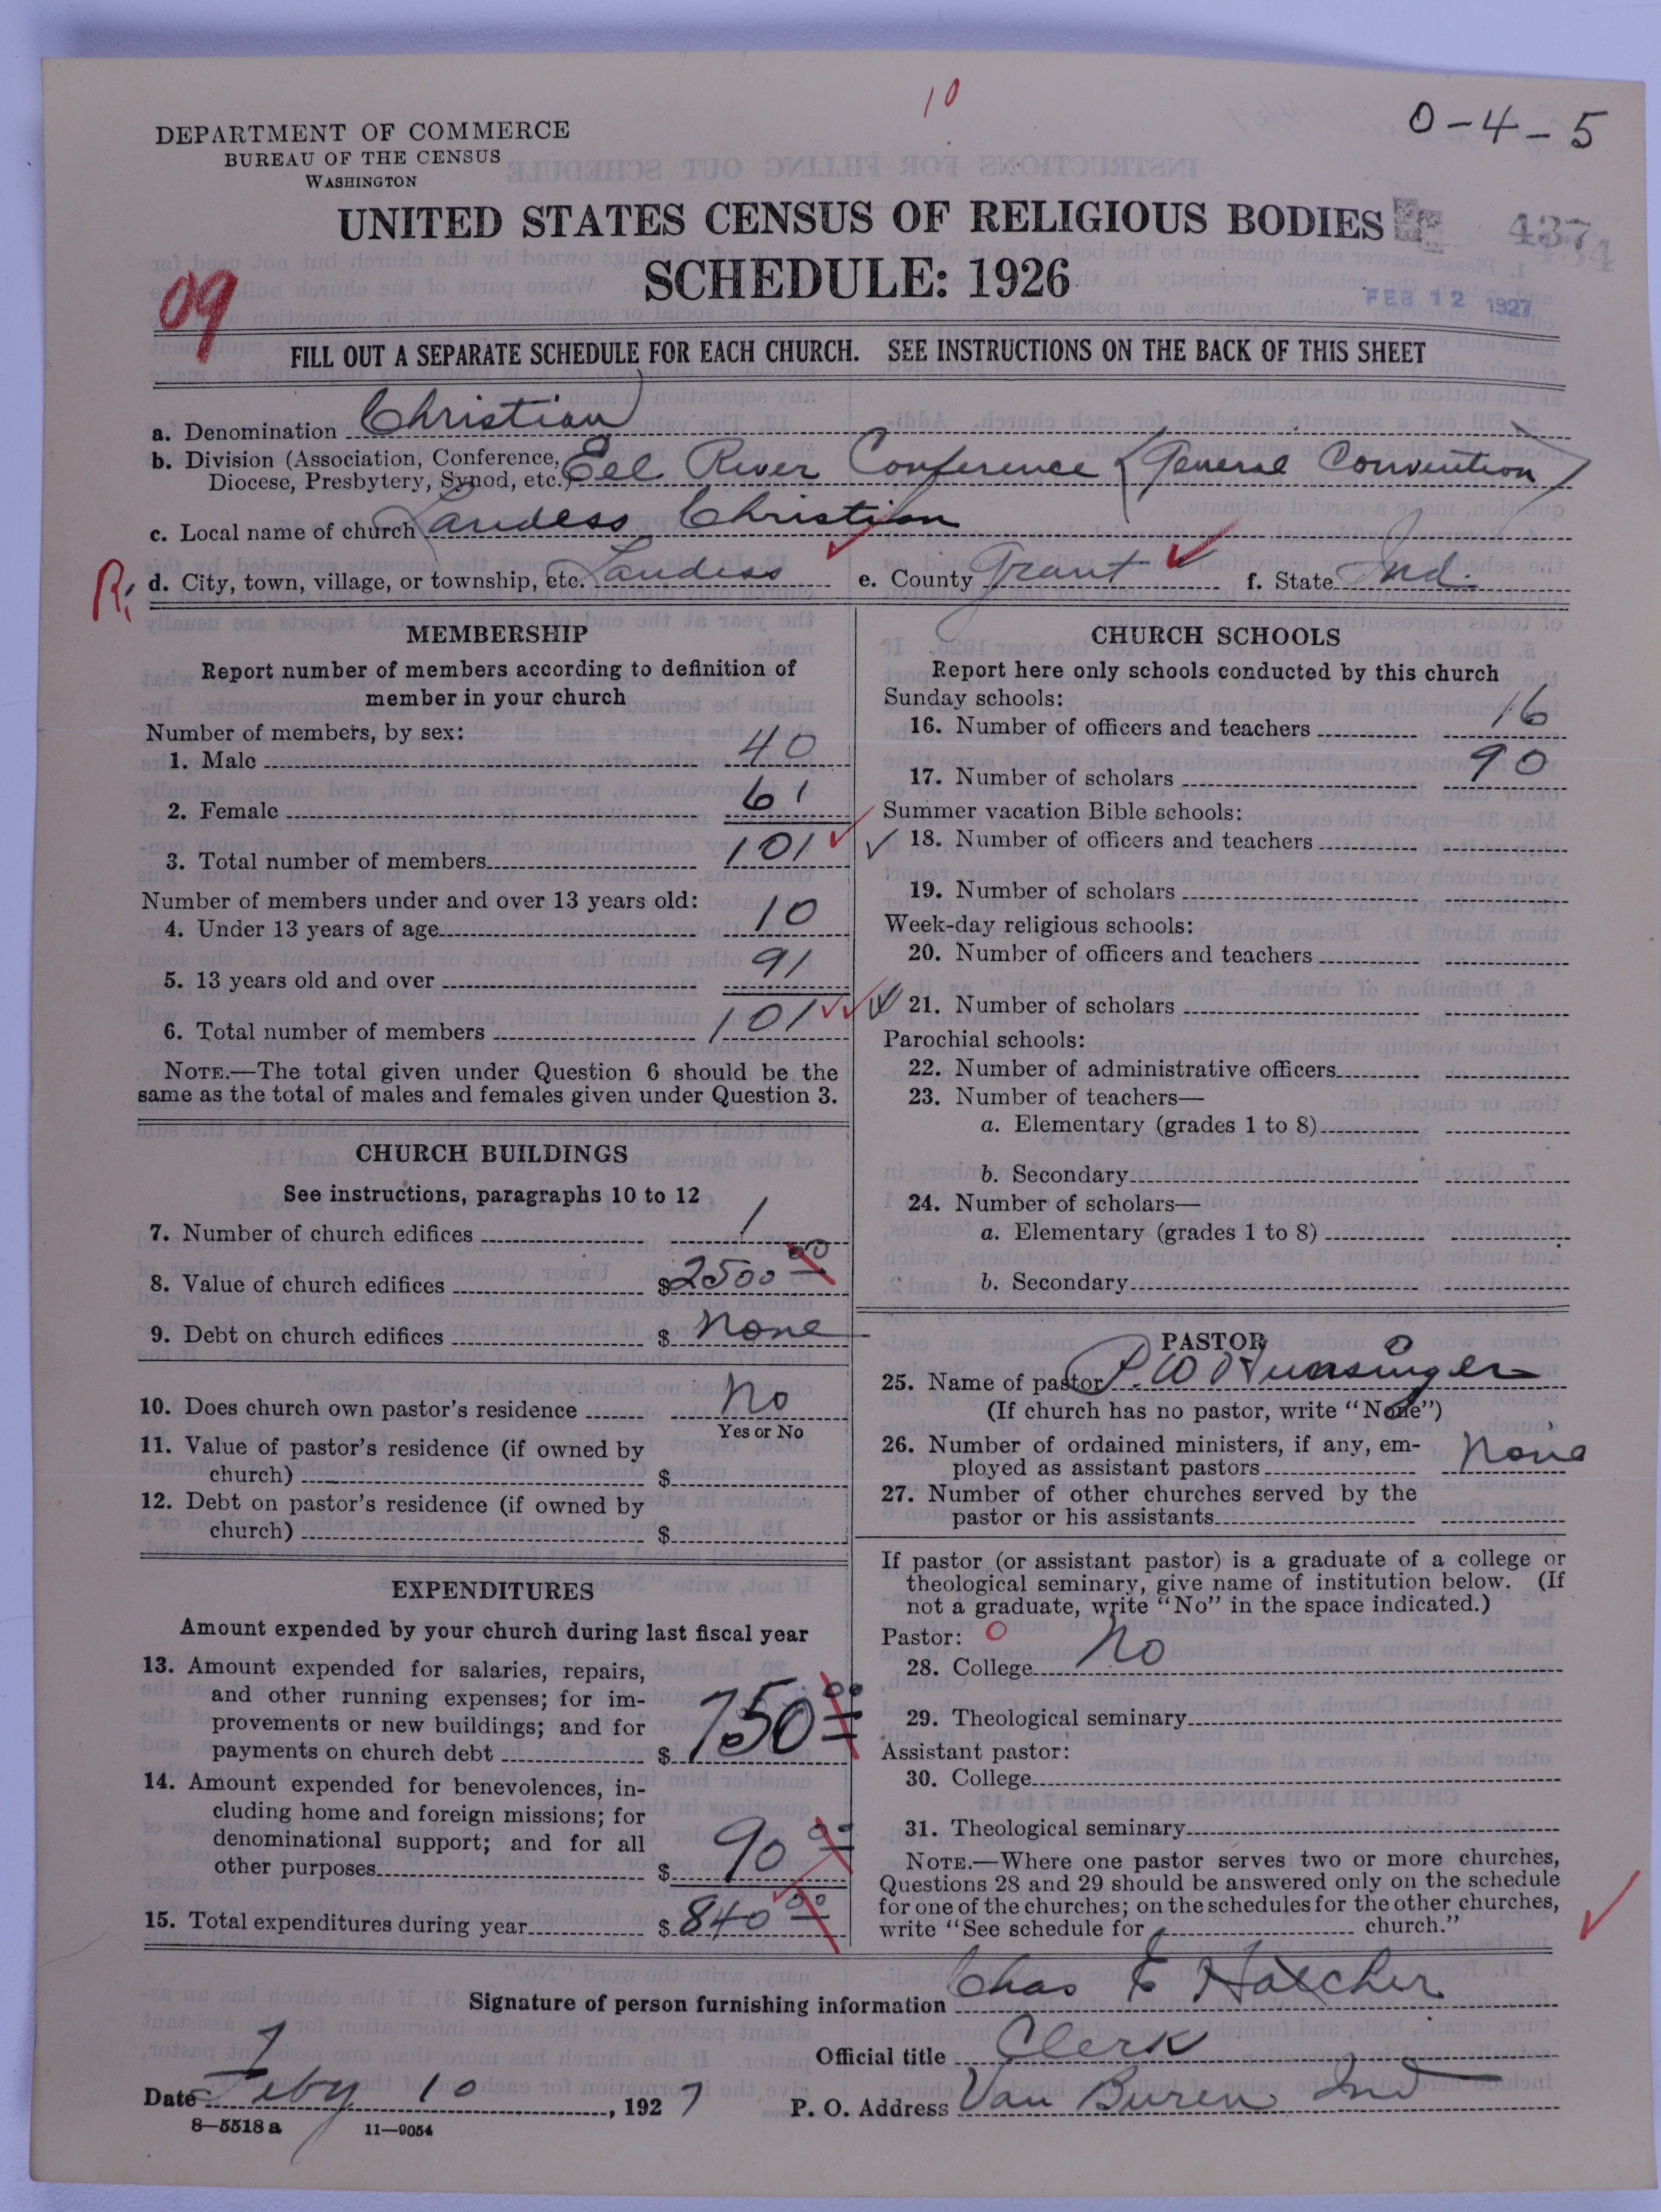 10
0-4-5
DEPARTMENT OF COMMERCE
BUREAU OF THE CENSUS
WASHINGTON
UNITED STATES CENSUS OF RELIGIOUS BODIES
SCHEDULE: 1926
09
FEB 12 1927
FILL OUT A SEPARATE SCHEDULE FOR EACH CHURCH. SEE INSTRUCTIONS ON THE BACK OF THIS SHEET
a. Denomination Christian
b. Division (Association, Conference, Diocese, Presbytery, Synod, etc.) Eel River Conference (General Convention)
c. Local name of church Landess Christian
R; d. City, town, village, or township, etc. Landess e. County Grant f. State Ind.
MEMBERSHIP
Report number of members according to definition of
member in your church
Number of members, by sex:
1. Male 40
2. Female 61
3. Total number of members 101
Number of members under and over 13 years old:
4. Under 13 years of age 10
5. 13 years old and over 91
6. Total number of members 101
NOTE.—The total given under Question 6 should be the
same as the total of males and females given under Question 3.
CHURCH BUILDINGS
See instructions, paragraphs 10 to 12
7. Number of church edifices 1
8. Value of church edifices $2500 00
9. Debt on church edifices $ None
10. Does church own pastor's residence No
Yes or No
11. Value of pastor's residence (if owned by
church) $
12. Debt on pastor's residence (if owned by
church) $
EXPENDITURES
Amount expended by your church during last fiscal year
13. Amount expended for salaries, repairs,
and other running expenses; for im-
provements or new buildings; and for
payments on church debt $ 750 00
14. Amount expended for benevolences, in-
cluding home and foreign missions; for
denominational support; and for all
other purposes $ 90 00
15. Total expenditures during year $ 840 00
CHURCH SCHOOLS
Report here only schools conducted by this church
Sunday schools:
16. Number of officers and teachers 16
17. Number of scholars 90
Summer vacation Bible schools:
18. Number of officers and teachers
19. Number of scholars
Week-day religious schools:
20. Number of officers and teachers
21. Number of scholars
Parochial schools:
22. Number of administrative officers
23. Number of teachers—
a. Elementary (grades 1 to 8)
b. Secondary
24. Number of scholars—
a. Elementary (grades 1 to 8)
b. Secondary
PASTOR
25. Name of pastor P. W. Hunsinger
(If church has no pastor, write "None")
26. Number of ordained ministers, if any, em-
ployed as assistant pastors None
27. Number of other churches served by the
pastor or his assistants
If pastor (or assistant pastor) is a graduate of a college or
theological seminary, give name of institution below. (If
not a graduate, write "No" in the space indicated.)
Pastor: 0
28. College No
29. Theological seminary
Assistant pastor:
30. College
31. Theological seminary
NOTE.—Where one pastor serves two or more churches,
Questions 28 and 29 should be answered only on the schedule
for one of the churches; on the schedules for the other churches,
write "See schedule for church."
Signature of person furnishing information Chas E Hatcher
Official title Clerk
Date Feby 10, 1927 P. O. Address Van Buren Ind
8—5518 a 11—9054